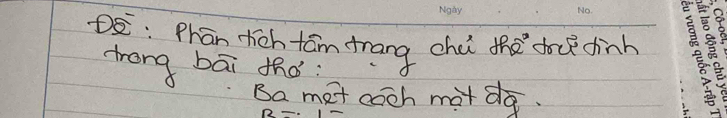 Ngày No.
Đề: Phân tích tâm trạng chủ thể trữ tình
trong bài thơ:
Ba mẹt cách mạt dạ.
, Cô-oét,
nất lao động chủ yếu
ểu vương quốc A-rập T